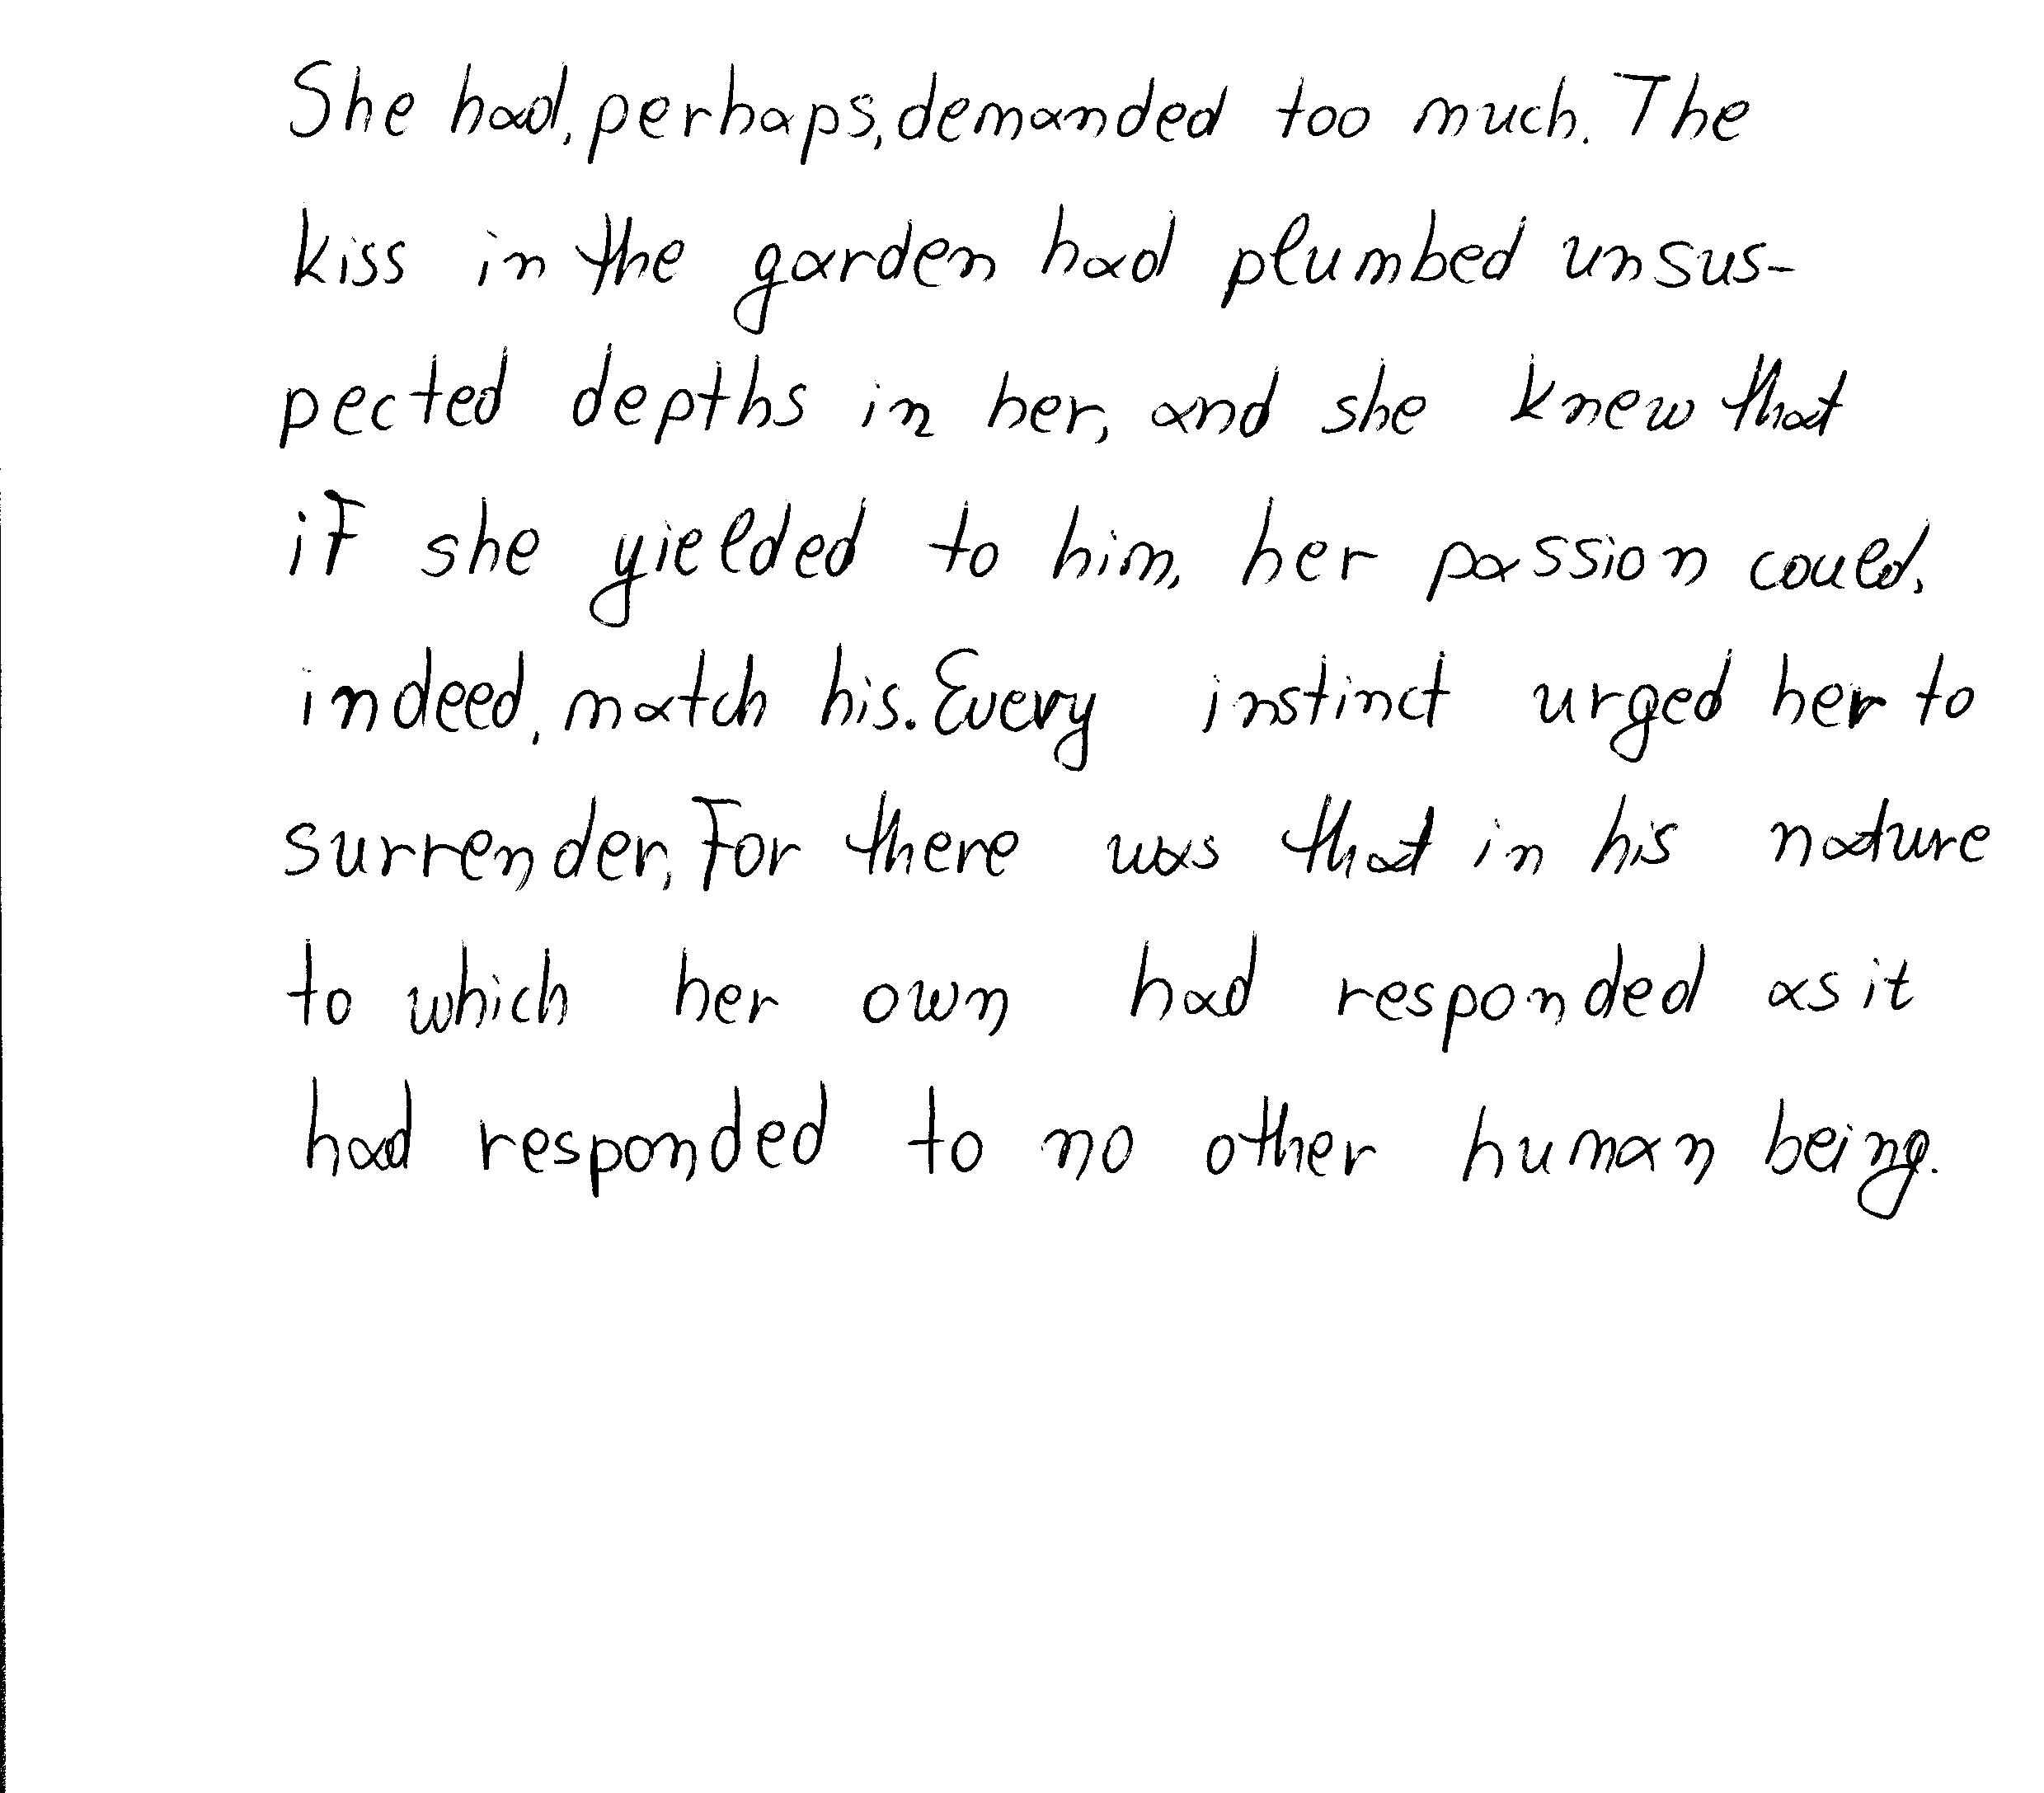 She had, perhaps, demanded too much. The
kiss in the garden had plumbed unsus-
pected depths in her, and she knew that
if she yielded to him, her passion could,
indeed, match his. Every instinct urged her to
surrender, for there was that in his nature
to which her own had responded as it
had responded to no other human being.